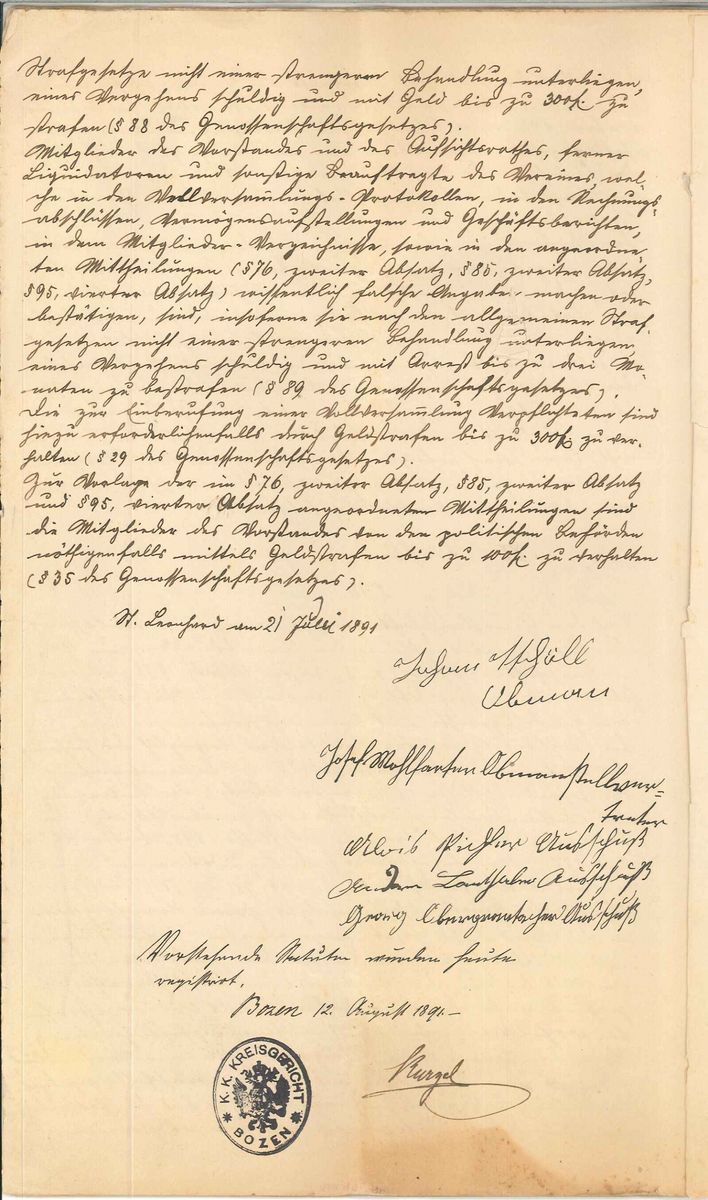 Strafgesetze nicht einer strengeren Behandlung unterliegen,
eines Vergehens schuldig und mit Geld bis zu 300f. zu
strafen (§ 88 des Genossenschaftsgesetzes).
Mitglieder des Vorstandes und des Aufsichtsrathes, ferner
Liquidatoren und sonstige Beauftragte des Vereines, wel-
che in den Vollversammlungs-Protokollen, in den Rechnungs-
abschlüssen, Vermögensaufstellungen und Geschäftsberichten,
in dem Mitglieder-Verzeichnisse, sowie in den angeordne-
ten Mittheilungen (§76, zweiter Absatz, §85, zweiter Absatz,
§95, vierter Absatz) wissentlich falsche Angabe machen oder
bestätigen, sind, insoferne sie nach den allgemeinen Straf-
gesetzen nicht einer strengeren Behandlung unterliegen
eines Vergehens schuldig und mit Arrest bis zu drei Mo-
naten zu bestrafen (§ 89 des Genossenschaftsgesetzes).
Die zur Einberufung einer Vollversammlung Verpflichteten sind
hiezu erforderlichenfalls durch Geldstrafen bis zu 300f. zu ver-
halten (§ 29 des Genossenschaftsgesetzes).
Zur Vorlage der im § 76, zweiter Absatz, §85, zweiter Absatz
und §95, vierter Absatz angeordneten Mittheilungen sind
die Mitglieder des Vorstandes von den politischen Behörden
nöthigenfalls mittels Geldstrafen bis zu 100f. zu verhalten
(§ 35 des Genossenschaftsgesetzes).
St. Leonhard am 21 Juli 1891
Johan
Obman
Josef Wohlfarter Obmanstellver=
treter
Alois Pichler Ausschuß
Lanthaler Ausschuß
Georg Ausschuß
Vorstehende Statuten wurden heute
registrirt.
Bozen 12. August 1891.—
Kurzel
K. K. KREISGERICHT
BOZEN